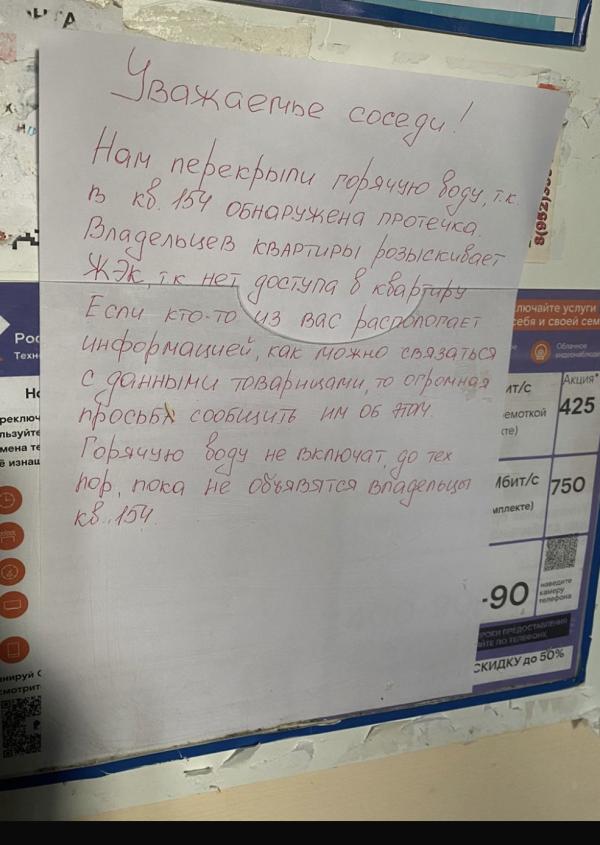 Уважаемые соседи!
Нам перекрыли горячую воду, т.к.
в кв. 154 обнаружена протечка.
Владельцев квартиры розыскивает
ЖЭК, т.к нет доступа в квартиру
Если кто-то из вас распологает
информацией, как можно связаться
с данными товарищами, то огромная
просьба сообщить им об этом.
Горячую воду не включат, до тех
пор, пока не объявятся владельцы
кв. 154.
8(952)
Рос
Техно
ключайте услуги
себя и своей сем
Облачное
видеонаблюде
Акция*
ит/с
425
емоткой
кте)
Мбит/с
750
мплекте)
-90
наведите
камеру
телефона
РОКИ ПРЕДОСТАВЛЕНИЯ
ЙТЕ ПО ТЕЛЕФОНУ
СКИДКУ до 50%
реключ
льзуйте
мена те
ё изнаш
нируй С
смотрит